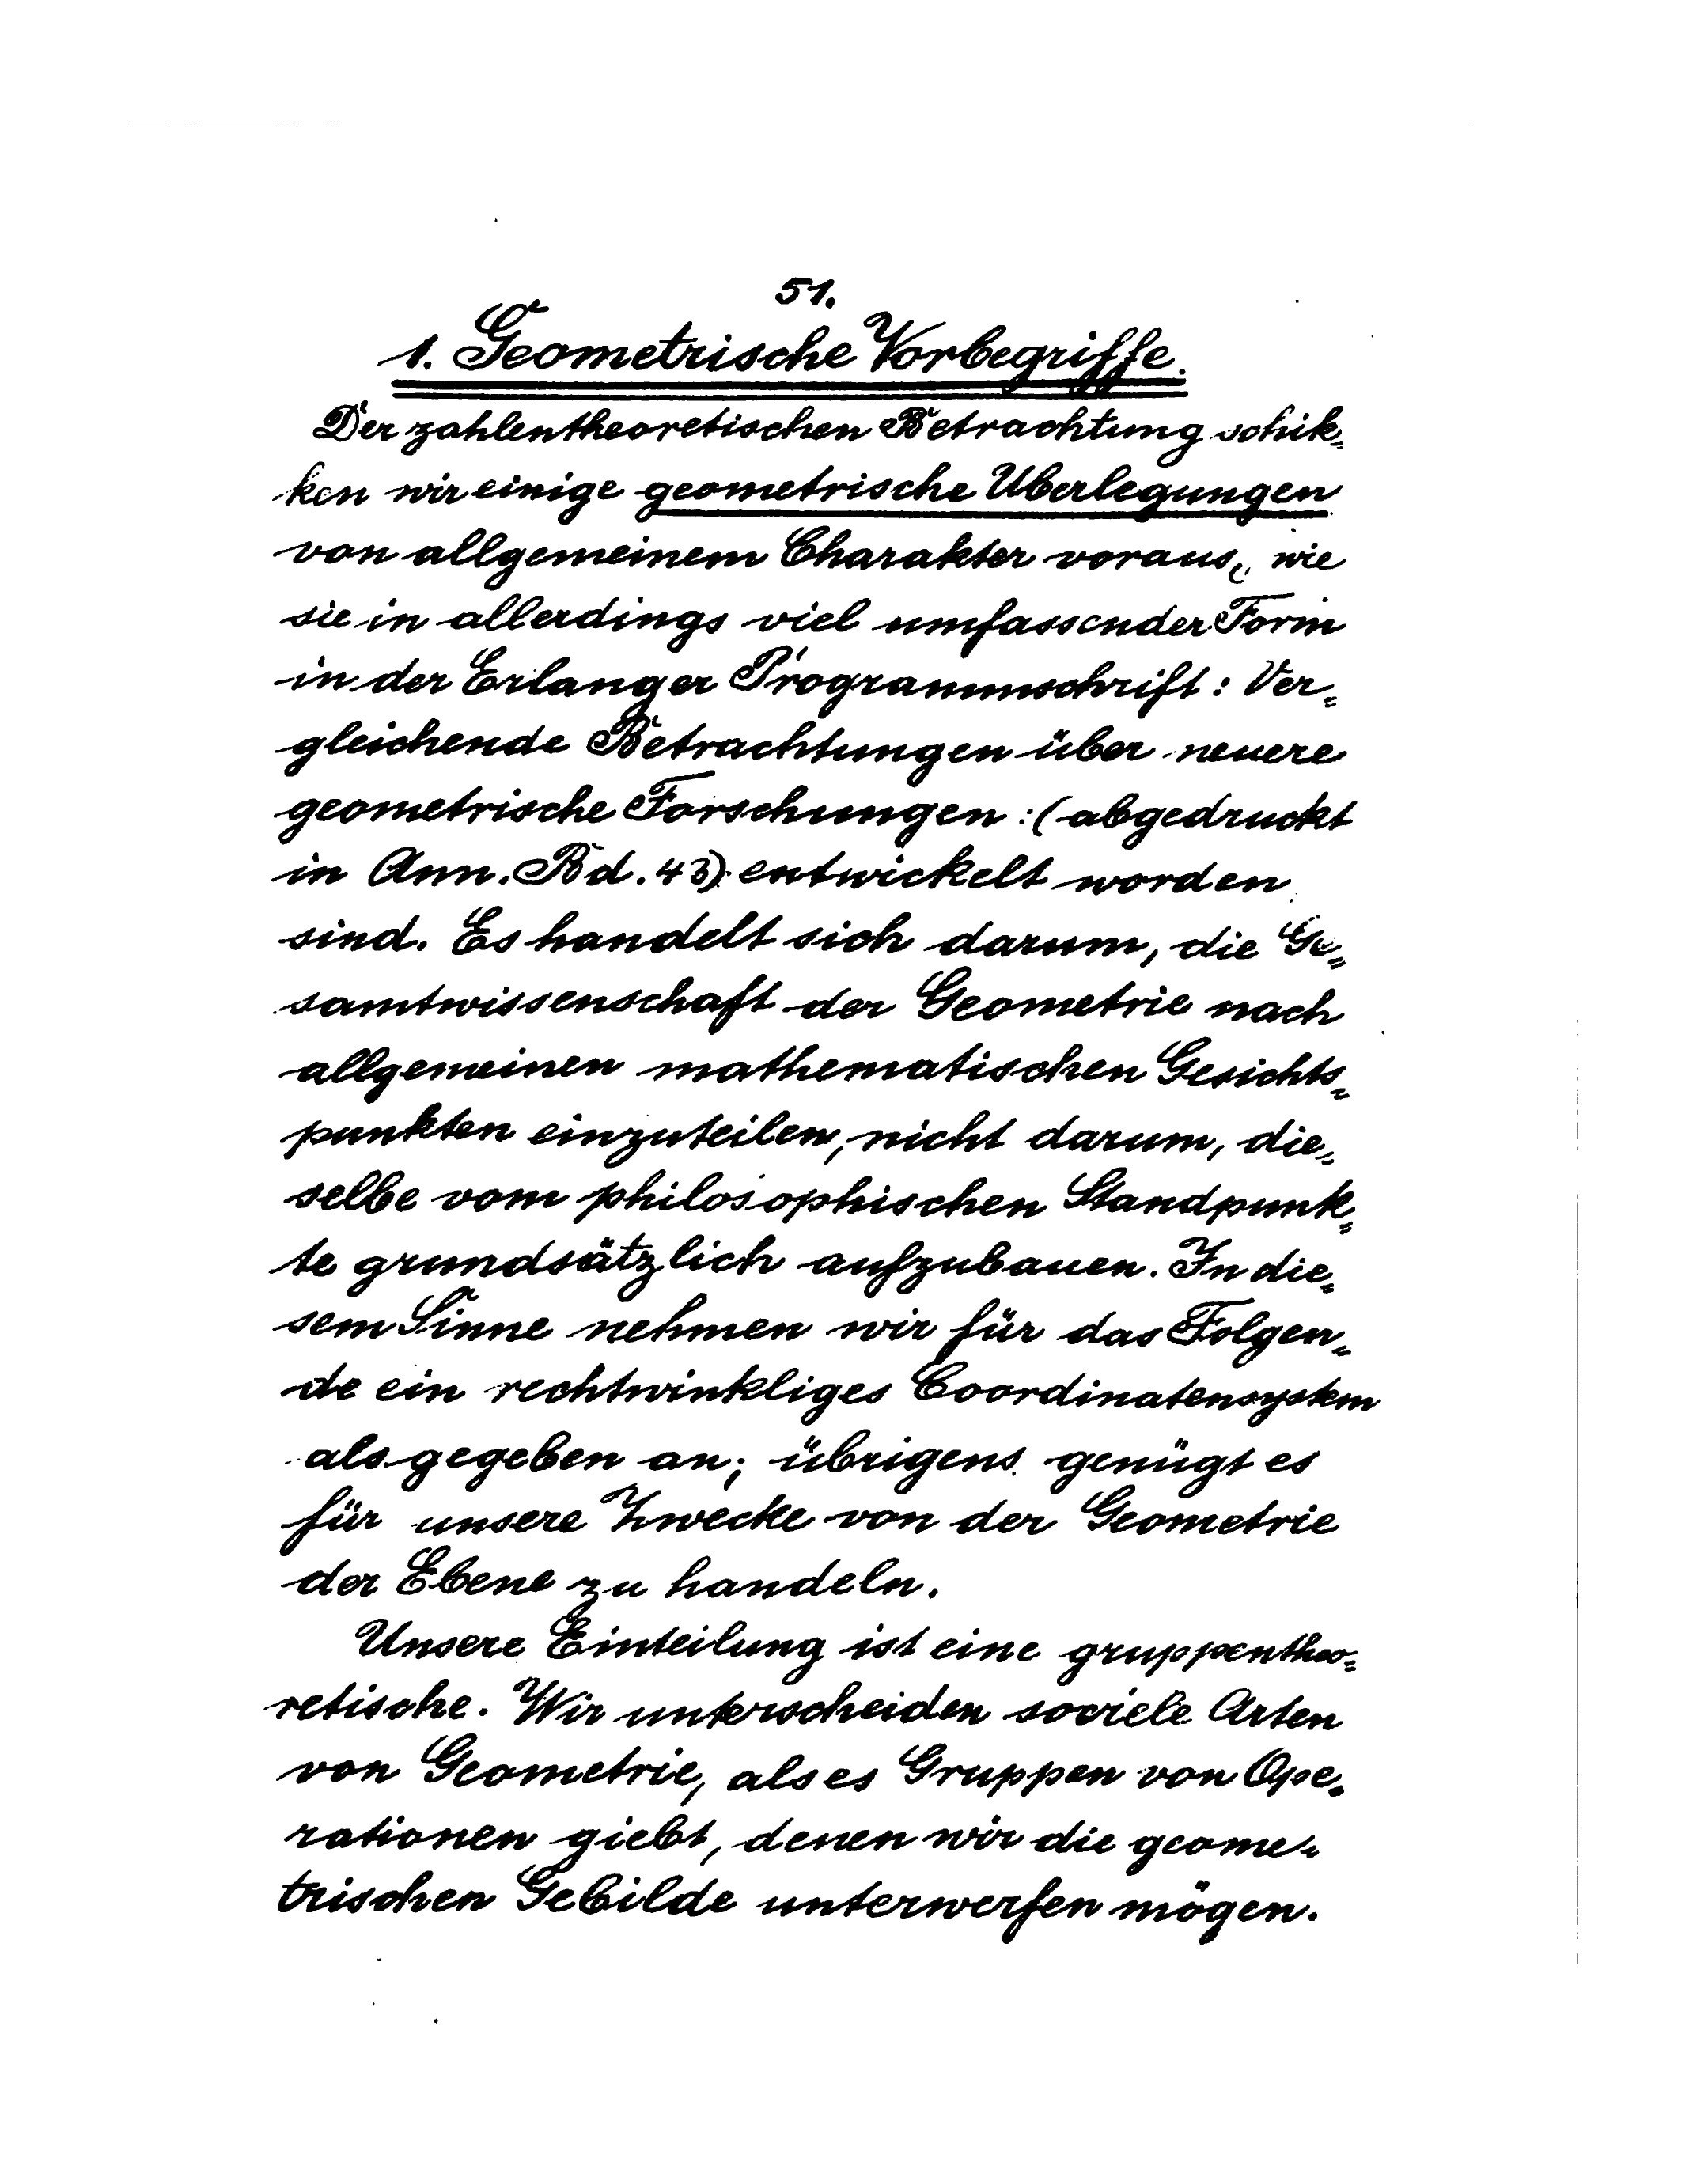 51.
1. Geometrische Vorbegriffe.
Der zahlentheoretischen Betrachtung schik-
ken wir einige geometrische Überlegungen
von allgemeinem Charakter voraus, wie
sie in allerdings viel umfassender Form
in der Erlanger Programmschrift: Ver-
gleichende Betrachtungen über neuere
geometrische Forschungen :(abgedruckt
in Ann. Bd. 43) entwickelt worden
sind. Es handelt sich darum, die Ge-
samtwissenschaft der Geometrie nach
allgemeinen mathematischen Gesichts-
punkten einzuteilen, nicht darum, die-
selbe vom philosophischen Standpunk-
te grundsätzlich aufzubauen. In die-
sem Sinne nehmen wir für das Folgen-
de ein rechtwinkliges Coordinatensystem
als gegeben an; übrigens genügt es
für unsere Zwecke von der Geometrie
der Ebene zu handeln.
Unsere Einteilung ist eine gruppentheo-
retische. Wir unterscheiden soviele Arten
von Geometrie, als es Gruppen von Ope-
rationen giebt, denen wir die geome-
trischen Gebilde unterwerfen mögen.